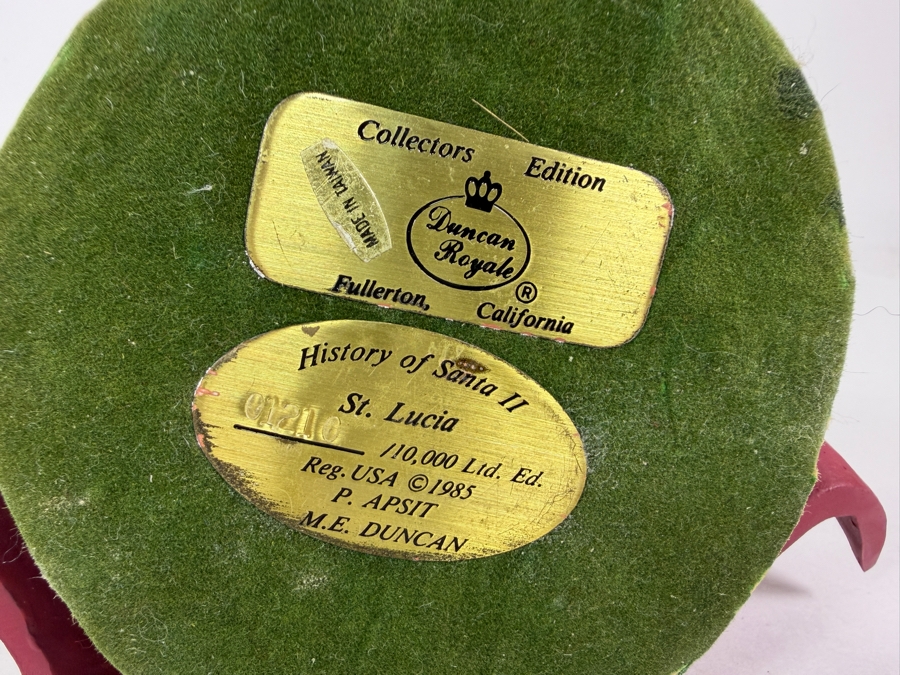 Collectors Edition
MADE IN TAIWAN
Duncan
Royale
®
Fullerton, California
History of Santa II
St. Lucia
01210 /10,000 Ltd. Ed.
Reg. USA ©1985
P. APSIT
M.E. DUNCAN